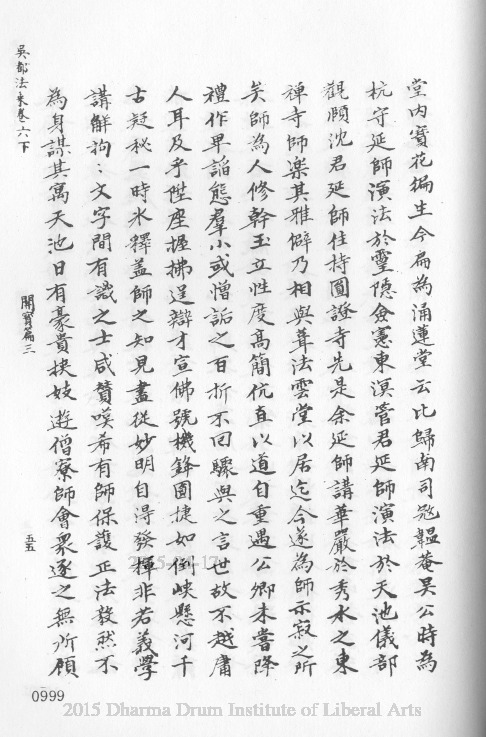 堂內寶花徧生今扁為涌蓮堂云比歸南司寇韞菴吳公時為
杭守延師演法於靈隱僉憲東溟管君延師演法於天池儀部
觀頤沈君延師住持圓證寺先是余延師講華嚴於秀水之東
禪寺師樂其雅僻乃相與葺法雲堂以居迄今遂為師示寂之所
矣師為人修幹玉立性度高簡伉直以道自重遇公卿未嘗降
禮作卑諂態羣小或憎詬之百折不回驟與之言世故不越庸
人耳及乎陞座握拂逞辯才宣佛號機鋒圓捷如倒峽懸河千
古疑秘一時氷釋蓋師之知見盡從妙明自淂發揮非若義學
講解拘〻文字間有識之士咸贊嘆希有師保護正法毅然不
為身謀其寓天池日有豪貴挾妓遊僧寮師會衆逐之無所顧
吳都法乘卷六下
開寶篇三
五五
0999
2015 Dharma Drum Institute of Liberal Arts